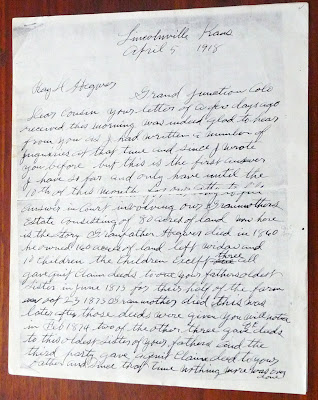 Lincolnville Kans
April 5 1918
Ray H Hegwer Grand Junction Colo
Dear Cousin your letter of a few days ago
received this morning was indeed glad to hear
from you as I had written a number of
inquiries at that time and since I wrote
you before but this is the first answer
I have so far and only have until the
10th of this month
answer in court involving our Grandmothers
Estate consisting of 80 acres of land now here
is the story Grandfather Hegwer died in 1860
he owned 160 acres of land left widow and
12 children the children Except three all
gave quit Claim deeds to our your fathers oldest
Sister in June 1873 for their half of the farm
and Oct 23 1873 Grandmother died this was
later after those deeds were given you will notice
in Feb 1874 two of the other three gave deeds
to this oldest sister of your fathers and the
third party gave a quit Claim deed to your
father and since that time nothing more was ever
done